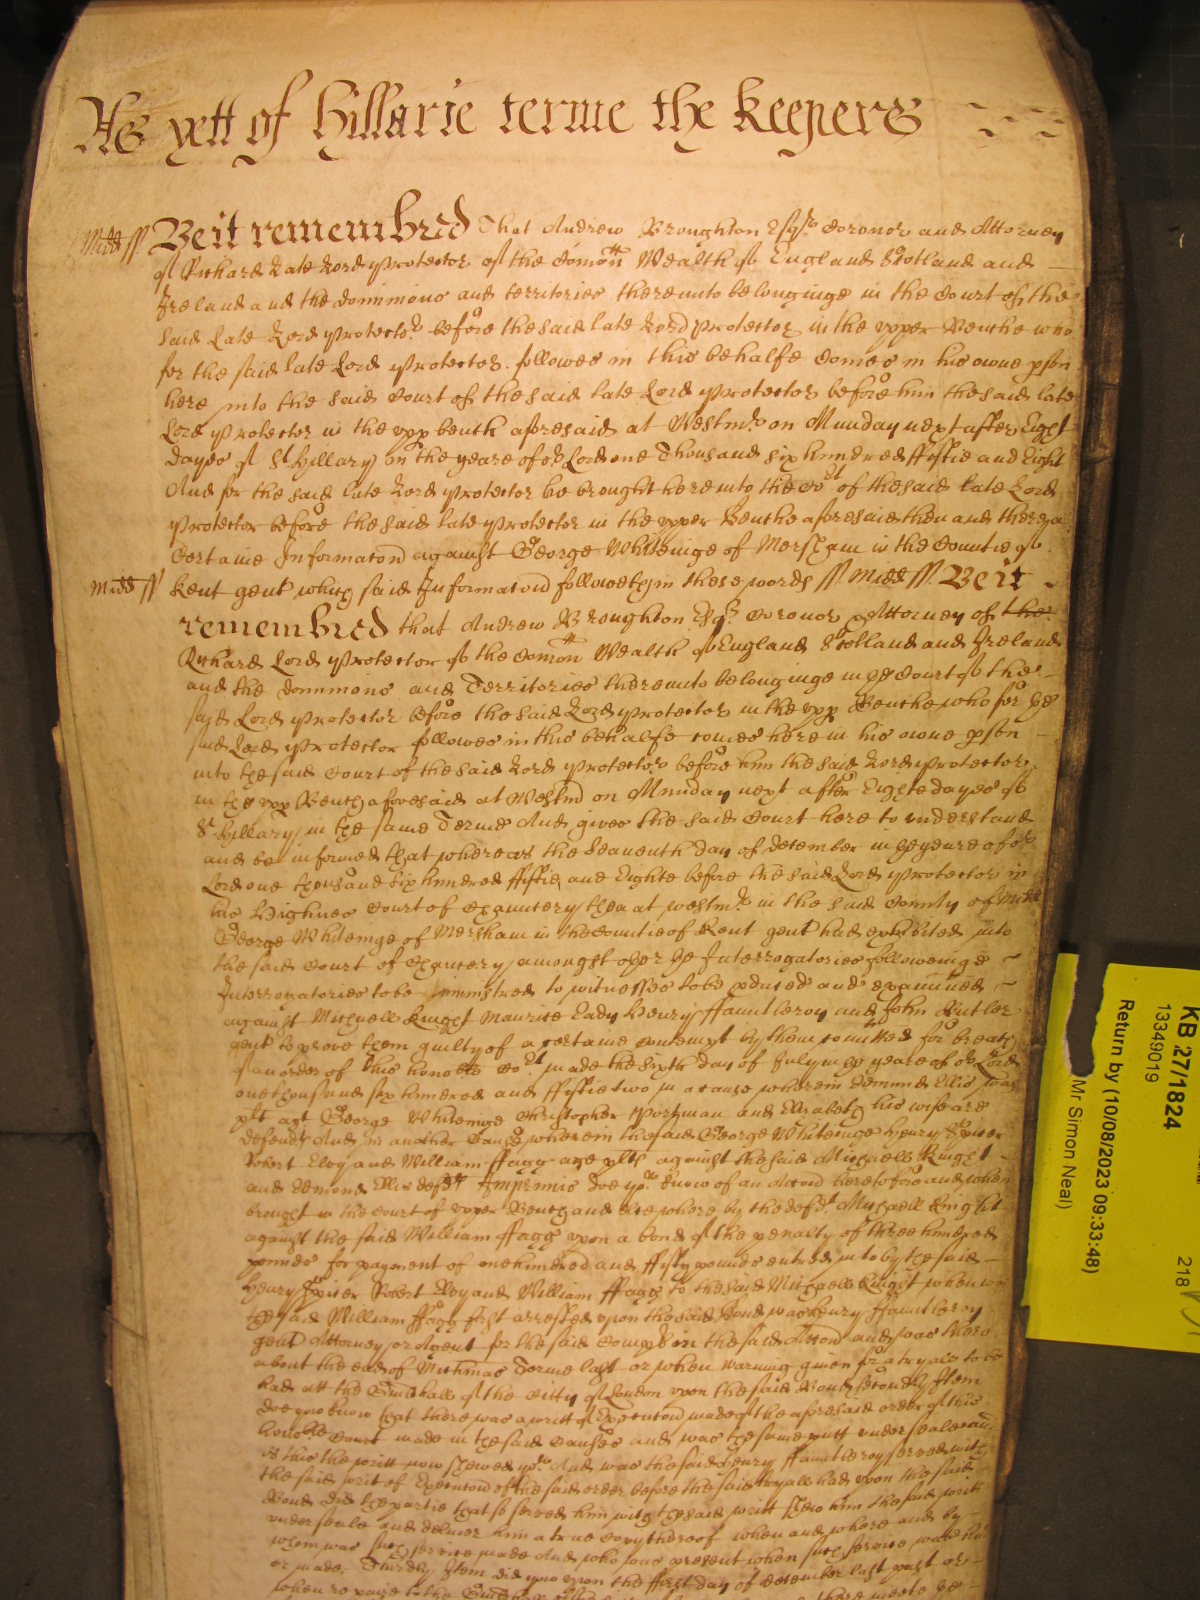 As yett of Hillarie terme the Keepers
Midd ss Be it remembred That Andrew Broughton Esqr Coronor and Attorney
of Richard late Lord Protector of the Comon Wealth of England Scotland and
Ireland and the dominions and territories thereunto belonginge in the Court of the
said late Lord Protector before the said late Lord Protector in the upper Benche who
for the said late Lord Protector followes in this behalfe Comes in his owne pson
here into the said Court of the said late Lord Protector before him the said late
Lord Protector in the upp bench aforesaid at Westmr on Munday next after Eight
dayes of St Hillary on the yeare of or Lord one Thousand six hundred ffiftie and Eight
And for the said late Lord Protector he brought here into the Cort of the said late Lord
Protector before the said late Protector in the upper Benche aforesaid then and there a
Certaine Informacon against George Whiteinge of Mersham in the Countie of
Midd ss Kent gent which said Informacon followeth in these words ss Midd ss Be it
remembred that Andrew Broughton Esqr Coronor & Attorney of the
Richard Lord Protector of the Comon Wealth of England Scotland and Ireland
and the dominions and Territories thereunto belonginge in ye Court of the
said Lord Protector before the said Lord Protector in the upp Benche who for ye
said Lord Protector followes in this behalfe comes here in his owne pson
into the said Court of the said Lord Protector before him the said Lord Protector
in the upp Bench aforesaid at Westm on Munday next after Eighte dayes of
St Hillary in the same Terme And gives the said Court here to understand
and be informed that whereas the seaventh day of december in ye yeare of or
Lord one thousand six hundred ffiftie and Eighte before the said Lord Protector in
his Highnes Court of Chauncery then at westmr in the said County of Midd
George Whiteinge of Mersham in the Countie of Kent gent had exhibited into
the said Court of Chancery amongst other ye Interrogatories followeinge
Interrogatories to be ministred to witnesses to be pduced and examined
against Michaell Knight Maurice Eady Henry ffauntleroy and John Butler
gent to prove them guilty of a certaine contempt by them comitted for breach
of an order of this honoble Cort made the sixth day of July in ye yeare of or Lord
one thousand six hundred and ffiftie two in a cause wherein Edmund Ellis was
plt agt George Whiteinge Christopher Portman and Elizabeth his wife are
defendts And in another Cause wherein the said George Whiteinge Henry Spicer
Robert Eloy and William ffagg are plts against the said Michaell Knight
and Edmond Ellis defdts Imprimis doe you know of an Accon heretofore and when
brought in the Court of upper Bench and where by the defdt Michaell Knight
against the said William ffagg upon a bond of the penalty of three hundred
pounds for payment of one hundred and ffifty pounds entred into by the said
Henry Spicer Robert Eloy and William ffagg to the said Michaell Knight when was
the said William ffagg first arrested upon the said Bond was Henry ffauntleroy
gent Attorney or Agent for the said in the said Accon and was there
about the end of Michmas Terme last or when warning given for a tryall to be
had att the Guildhall of the Citty of London upon the said Bond secondly Item
doe you know that there was a writt of Execucon made of the aforesaid order of this
honoble Court made in the said Causes and was the same writt under seale and
is this the writt now shewed you And was the said Henry ffauntleroy served with
the said writ of Execucon of the said order before the said tryall had upon the said
Bond did the partie that so served him with the said writt shew him the said writt
under seale and deliver him a true Copy thereof when and where and by
whom was such service made And who was present when such service was had
or made Thirdly Item did you upon the first day of december last past or
KB 27/1824
13349019
218
Return by (10/08/2023 09:33:48)
Mr Simon Neal)